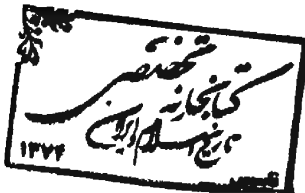 کتابخانه
تخصصی
تاریخ اسلام و ایران
۱۳۷۴